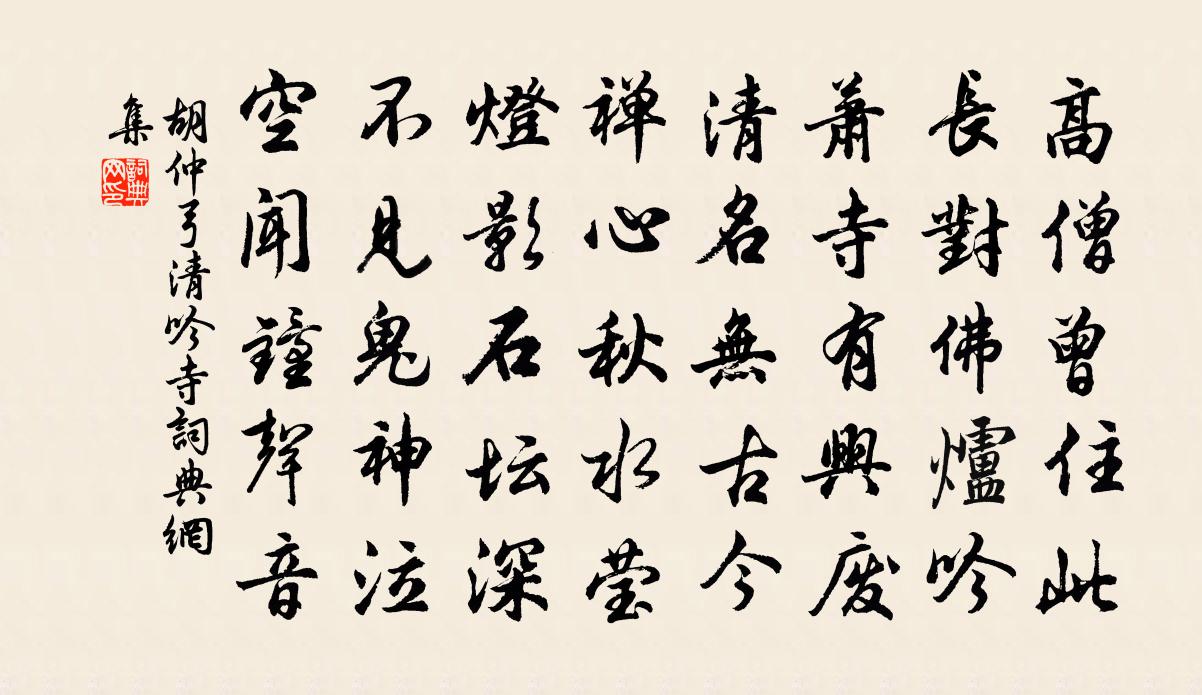 高僧曾住此
長對佛爐吟
蕭寺有興废
清名無古今
禅心秋水莹
燈影石坛深
不見鬼神泣
空聞鐘聲音
胡仲弓清吟寺詞典網
集
詞典網印